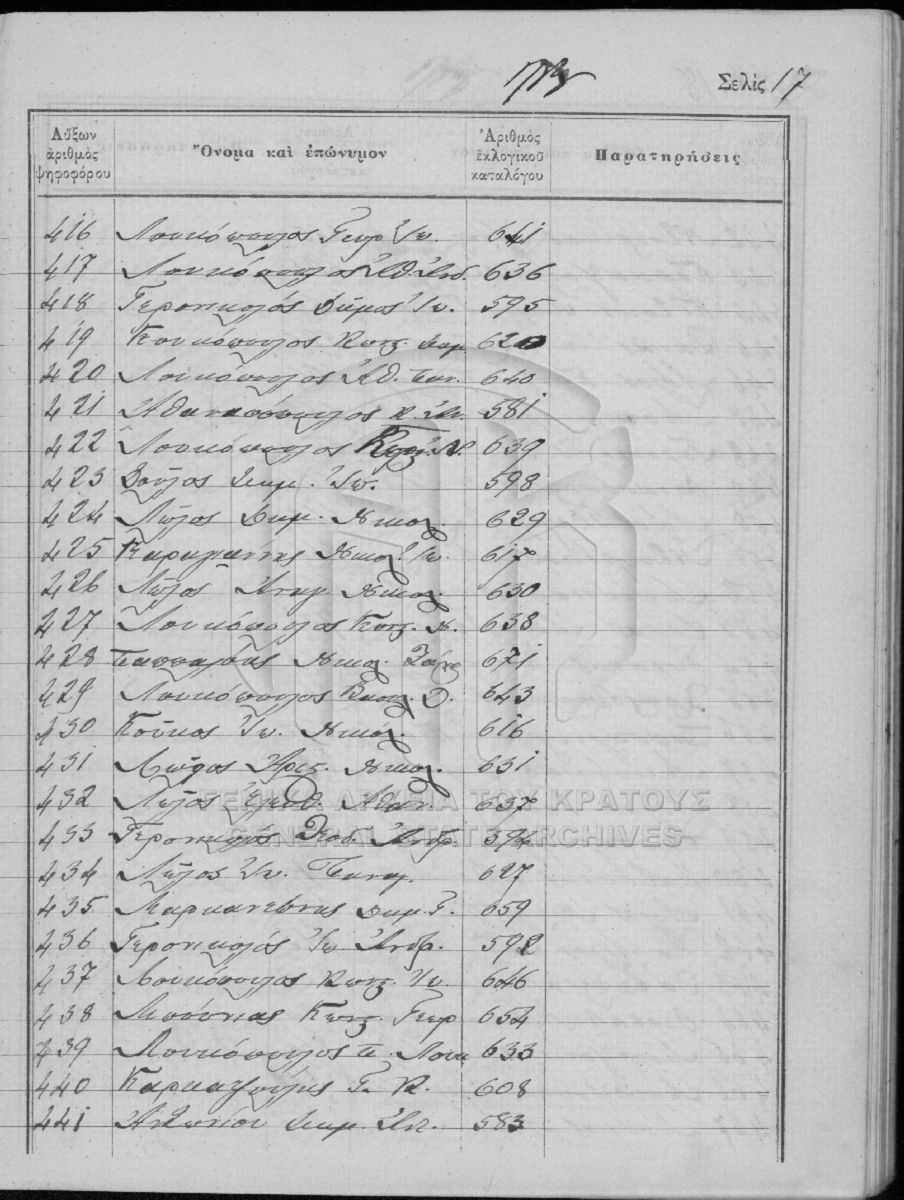 Σελὶς 17
Αὔξων ἀριθμὸς ψηφοφόρου Ὄνομα καὶ ἐπώνυμον Ἀριθμὸς ἐκλογικοῦ καταλόγου Παρατηρήσεις
416 Λουκόπουλος Γεωρ. Ἰω. 641
417 Λουκόπουλος Ἀθ. 636
418 Γερονικολός Δῆμος Ἰω. 595
419 Κουκόπουλος Κωνς. Δημ 620
420 Λουκόπουλος Ἀθ. Παν. 640
421 Ἀθανασόπουλος Κ. 581
422 Λουκόπουλος 639
423 Βοῦλος Δημ. Ἰω. 598
424 Λῶλος Δημ. Νικολ. 629
425 Καραγιαννης Νικολ. Ἰω. 617
426 Λῶλος Ἀναγ. Νικολ. 630
427 Λουκόπουλος Κωνς. Ν. 638
428 Παππαλέξης Νικολ. 671
429 Λουκόπουλος Βασιλ. Δ. 643
430 Κοῦκος Ἰω. Νικόλ. 616
431 Ἀρις. Νικολ. 631
432 Λῶλος Ἀθαν. 637
433 Γερονικολός Θεοδ. Ἀνδρ. 594
434 Λῶλος Ἰω. Παναγ. 627
435 Δημ. Γ. 659
436 Γερονικολός Ἰω Ἀνδρ. 592
437 Λουκόπουλος Κωνς. Ἰω. 646
438 Κωνς. Γεωρ 654
439 Λουκόπουλος Π. Λουκ 633
440 Γ. Κ. 608
441 Ἀντωνίου Δημ. 583
ΓΕΝΙΚΑ ΑΡΧΕΙΑ ΤΟΥ ΚΡΑΤΟΥΣ
GENERAL STATE ARCHIVES